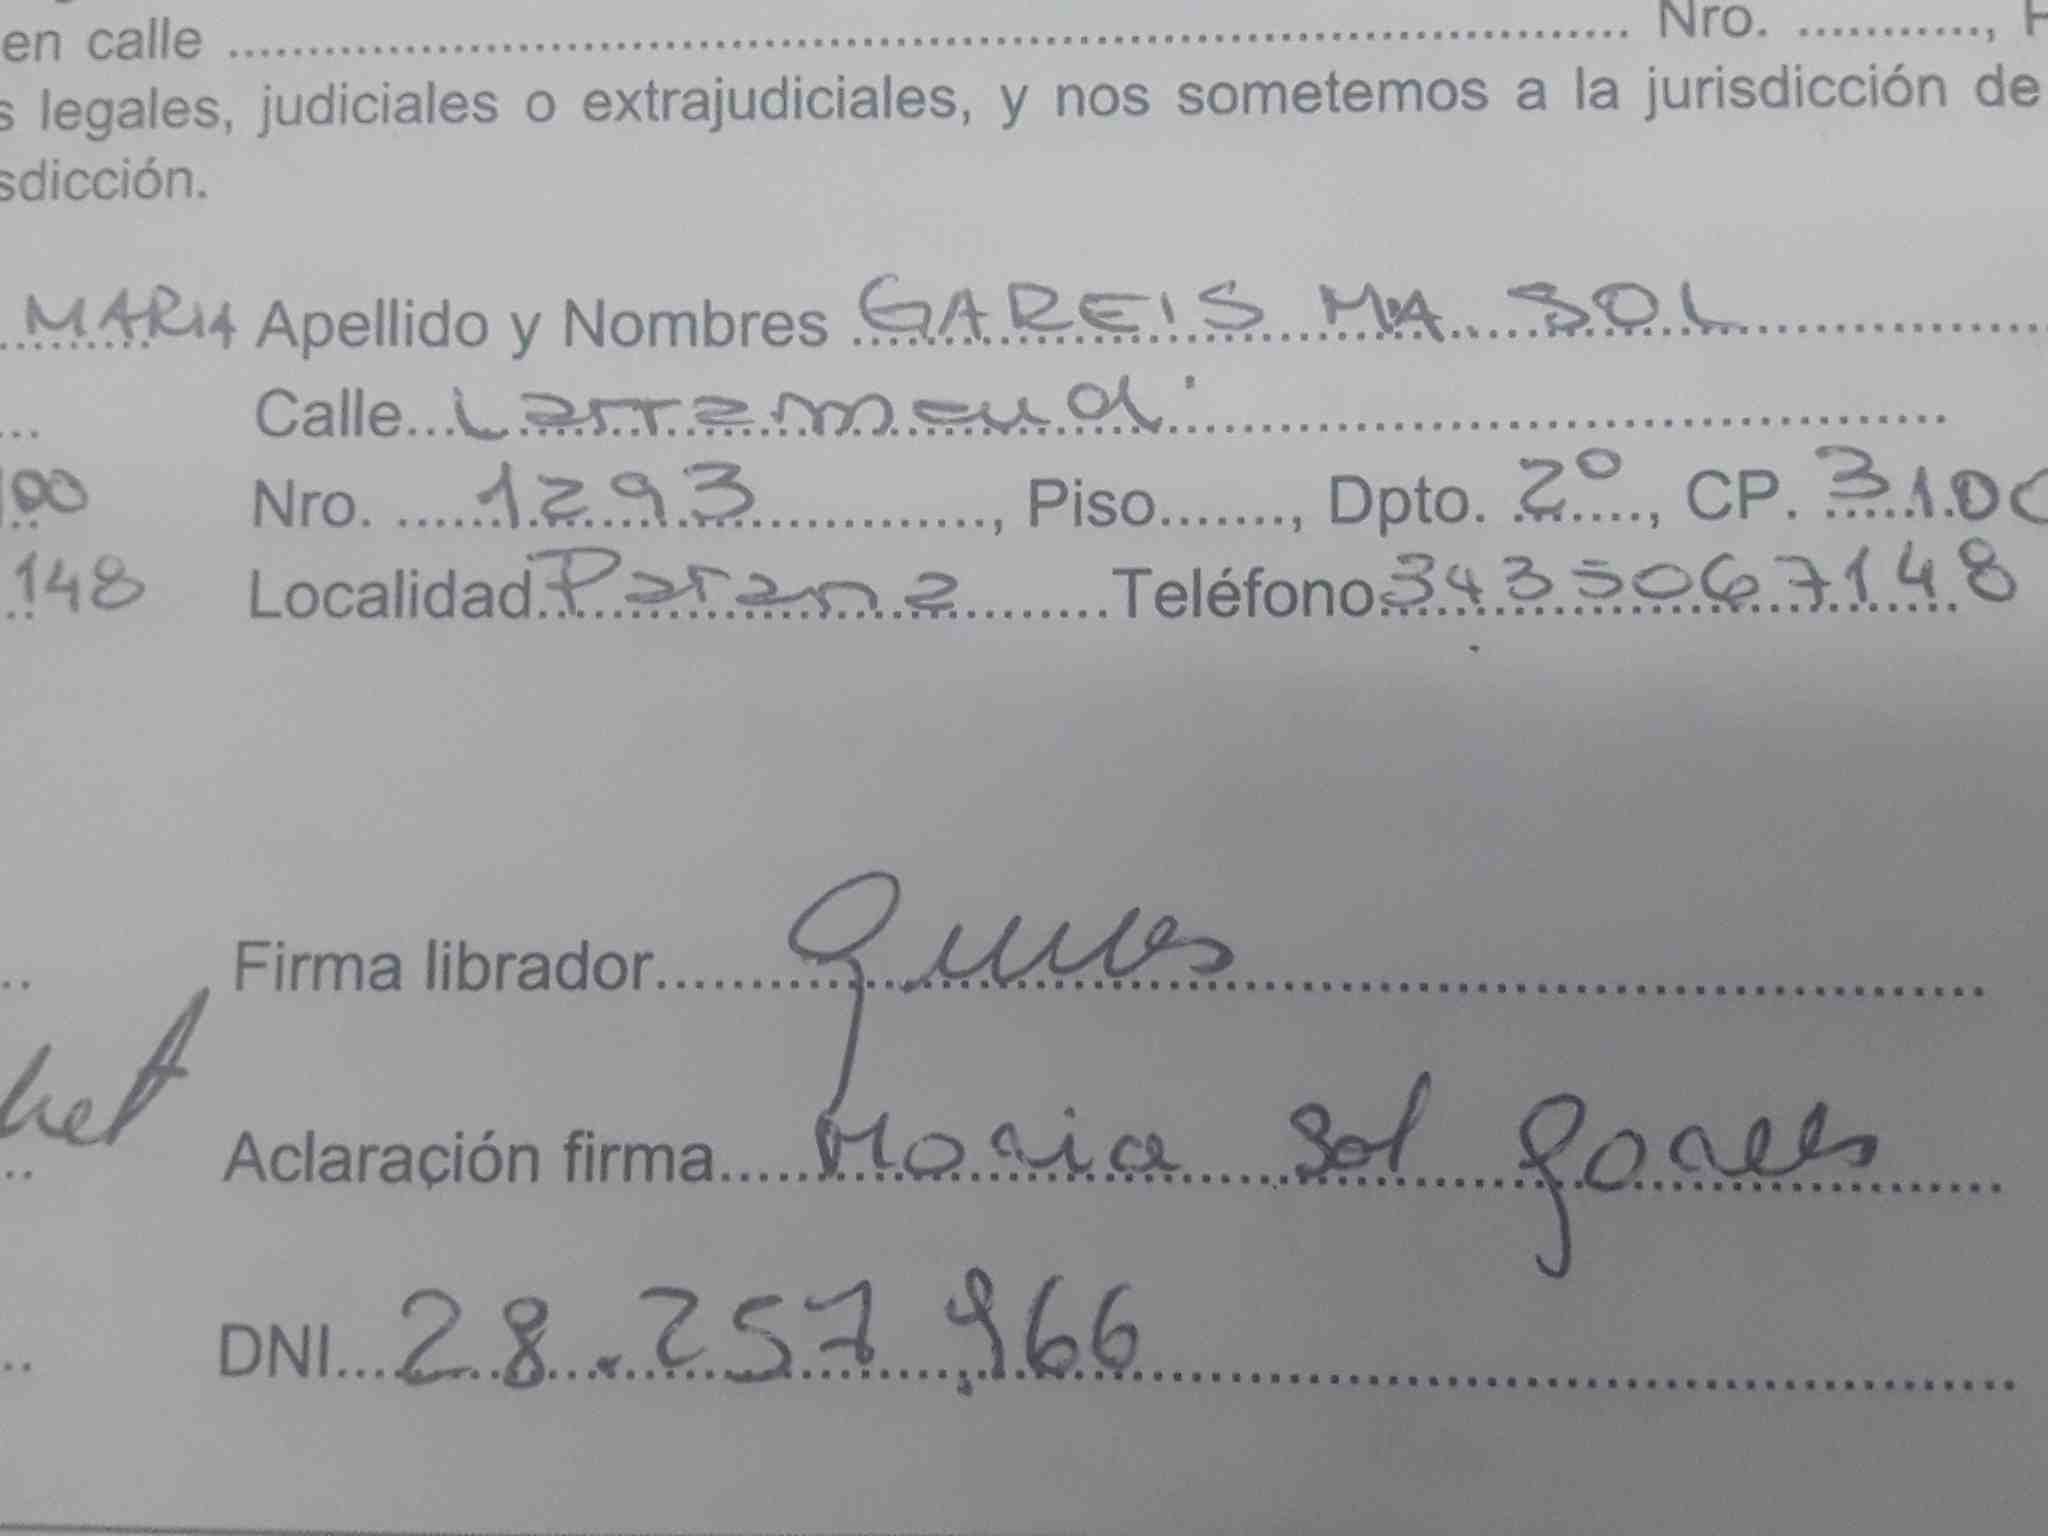 en calle .......... Nro. .........,
s legales, judiciales o extrajudiciales, y nos sometemos a la jurisdicción de
sdicción.
MARIA Apellido y Nombres GAREIS MA SOL
Calle Larramendi
100 Nro. 1293, Piso......., Dpto. 2º, CP. 3100
148 Localidad Parana Teléfono 3435067148
Firma librador
Aclaración firma Maria Sol Gareis
DNI 28.257.966